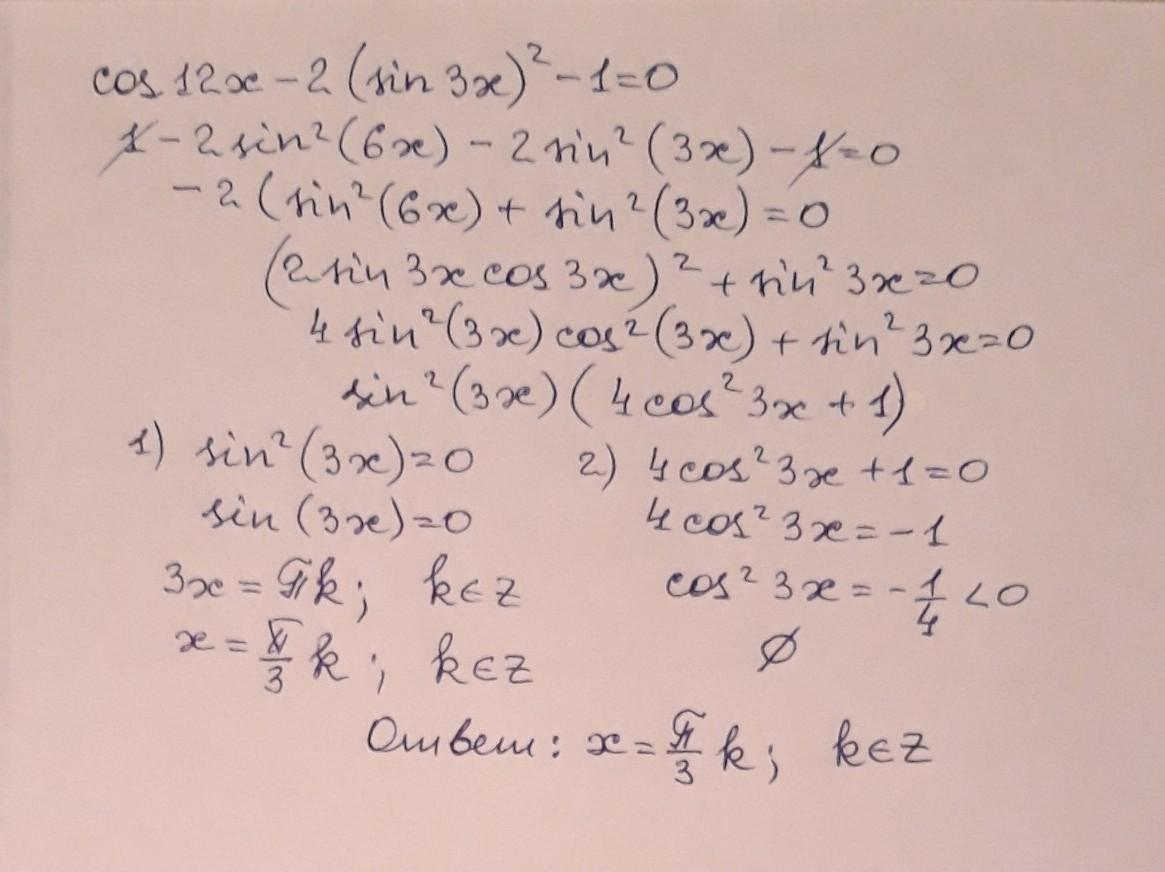 cos 12x - 2 (sin 3x)² - 1 = 0
1 - 2 sin² (6x) - 2 sin² (3x) - 1 = 0
- 2 (sin² (6x) + sin² (3x) = 0
(2 sin 3x cos 3x)² + sin² 3x = 0
4 sin² (3x) cos² (3x) + sin² 3x = 0
sin² (3x) (4 cos² 3x + 1)
1) sin² (3x) = 0 2) 4 cos² 3x + 1 = 0
sin (3x) = 0 4 cos² 3x = - 1
3x = πk; k ∈ z cos² 3x = - 1/4 < 0
x = π/3 k; k ∈ z ∅
Ответ: x = π/3 k; k ∈ z